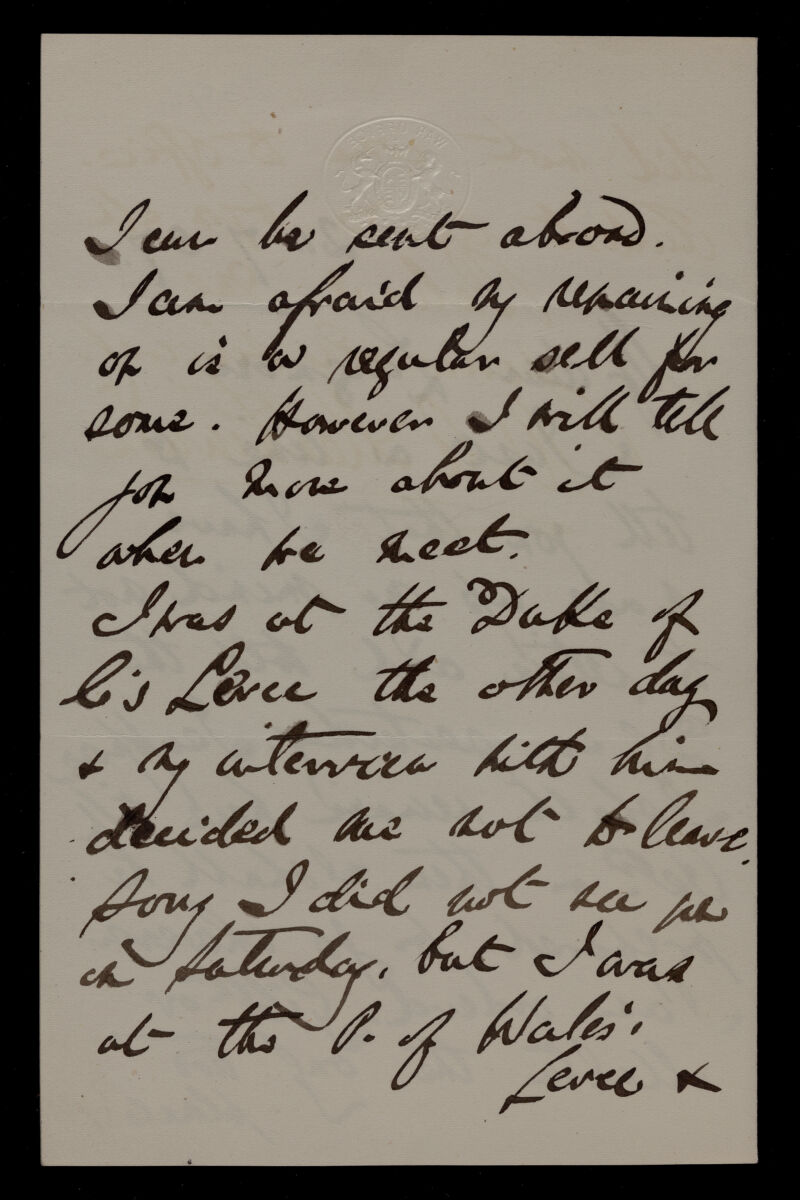 I can be sent abroad.
I am afraid my remaining
on is a regular sell for
some. However I will tell
you more about it
when we meet.
I was at the Duke of
C's Levee the other day
& my interview with him
decided me not to leave.
Sorry I did not see you
on Saturday, but I was
at the P. of Wales'.
Levee &